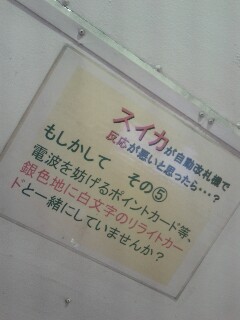 スイカが自動改札機で
反応が悪いと思ったら・・・？
もしかして その⑤
電波を妨げるポイントカード等、
銀色地に白文字のリライトカー
ドと一緒にしていませんか？